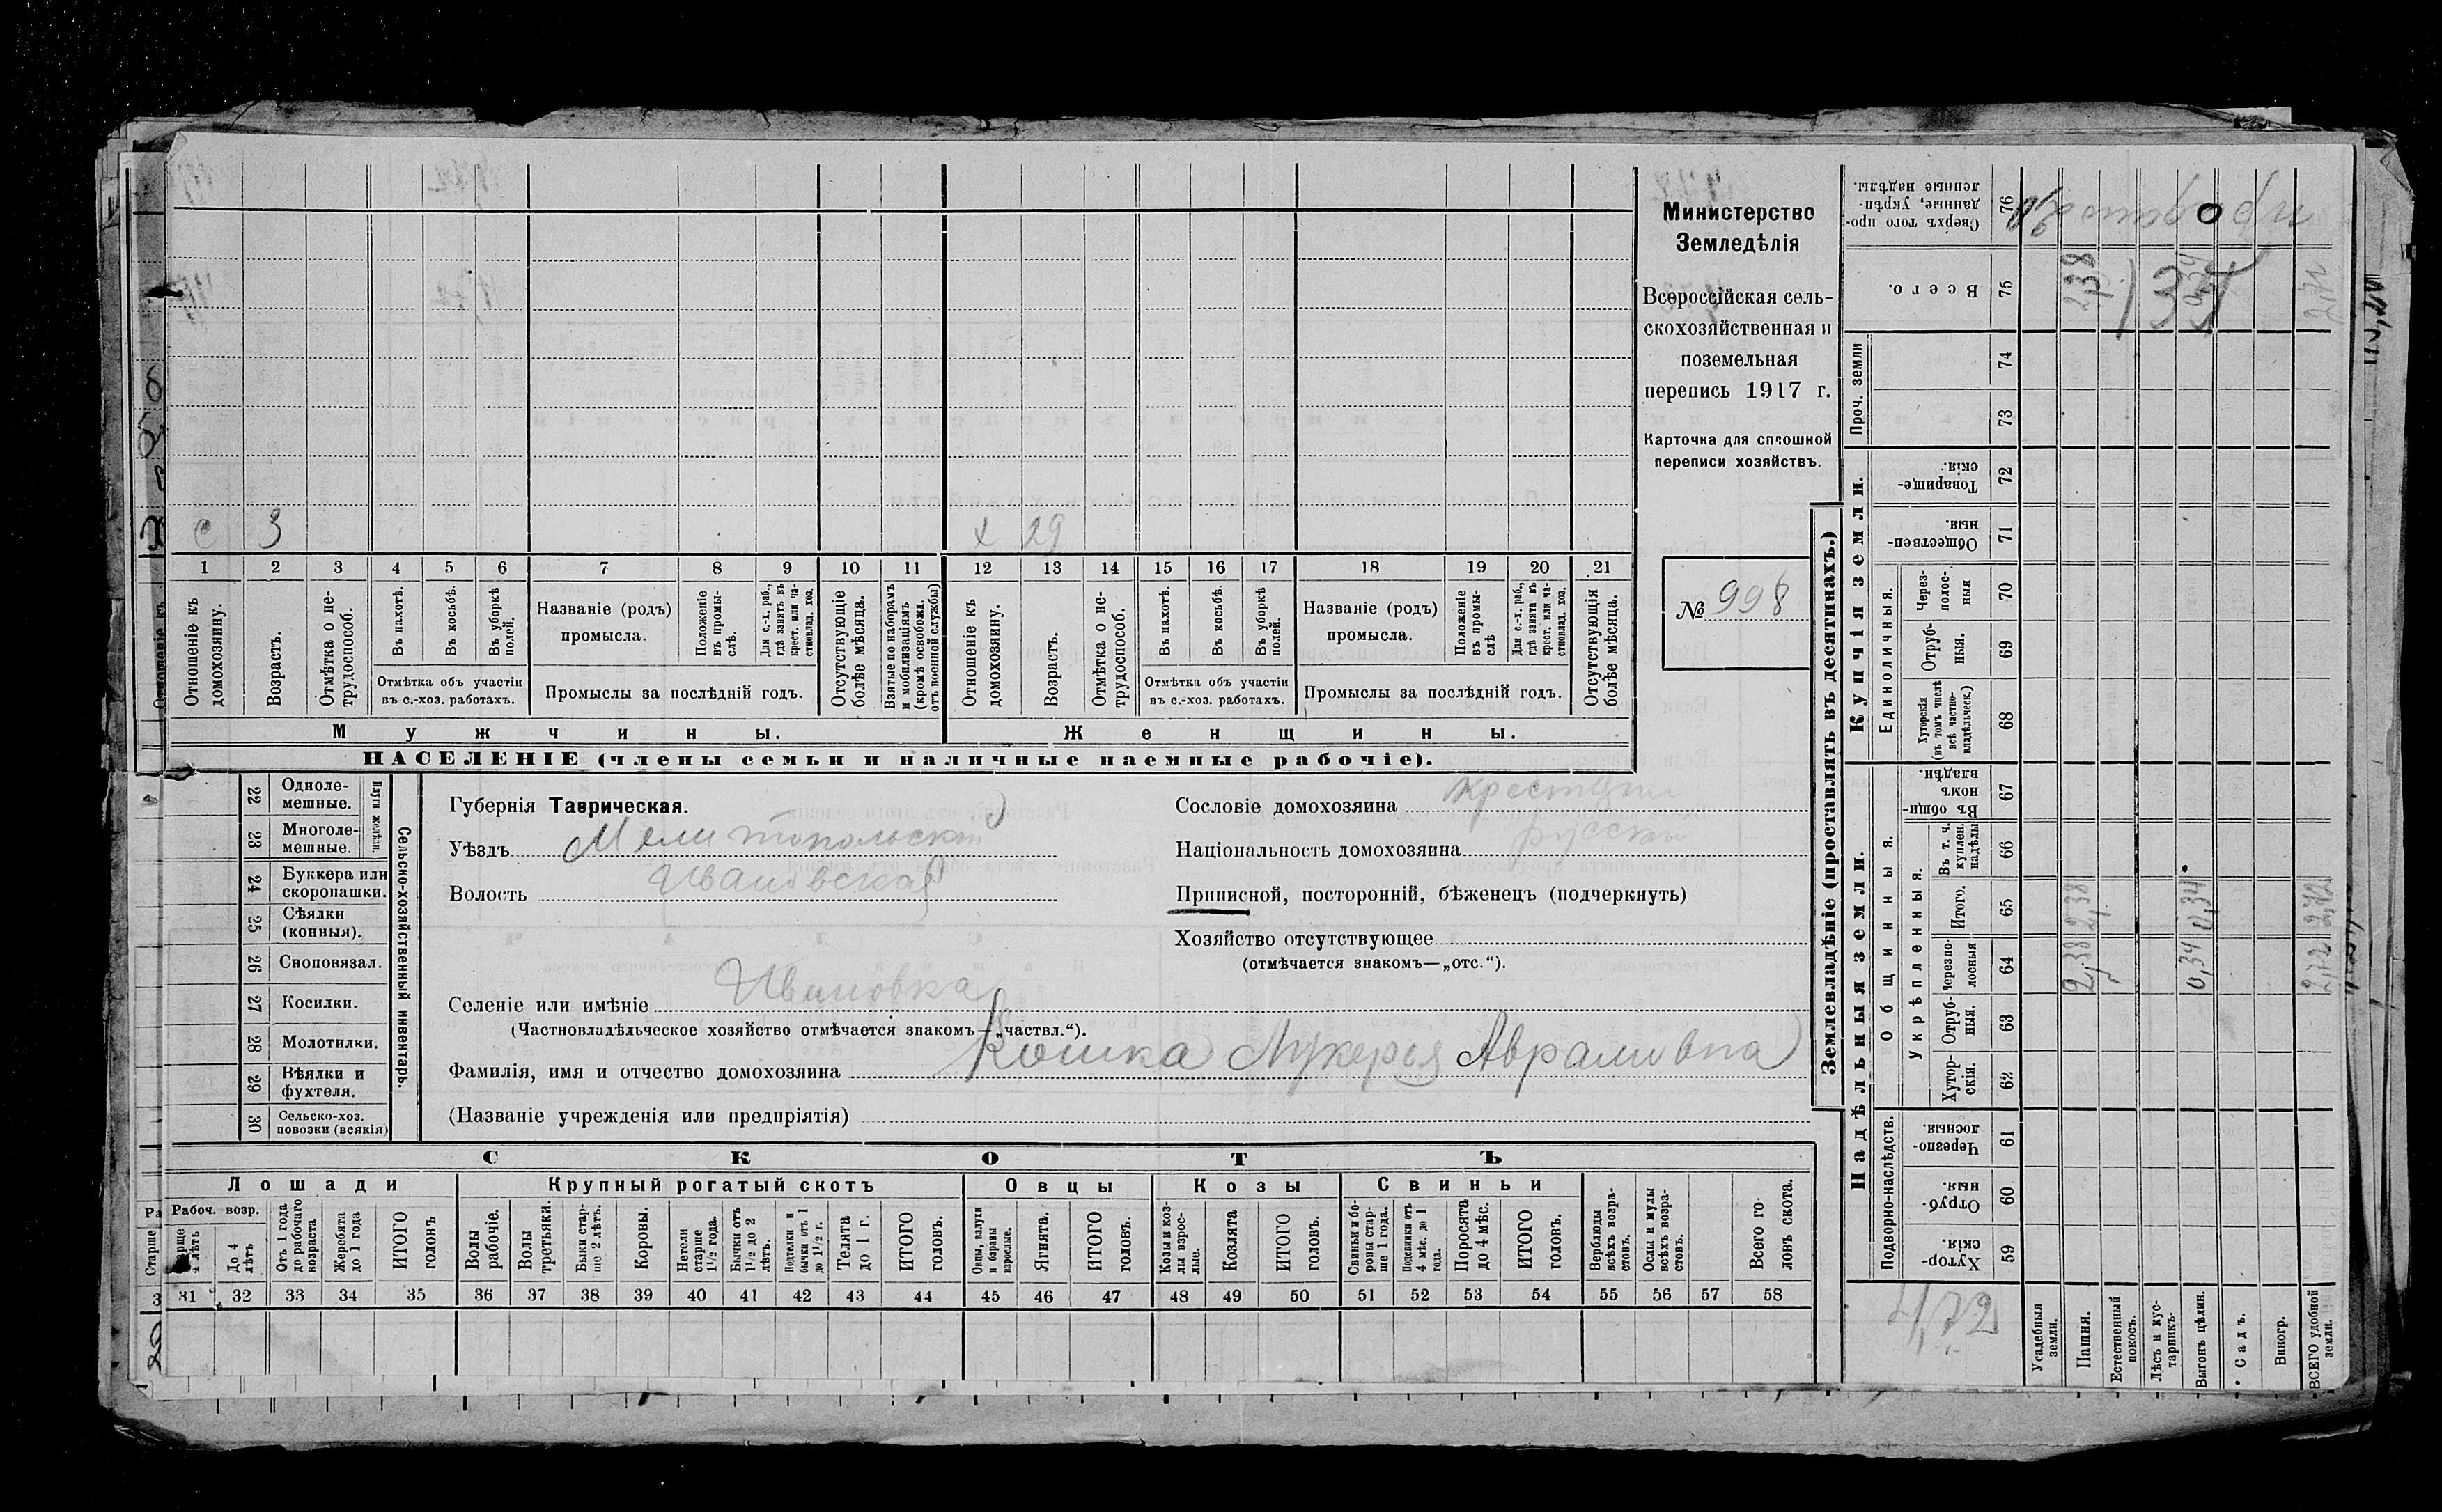 с 3 х 29
1 2 3 4 5 6 7 8 9 10 11 12 13 14 15 16 17 18 19 20 21
Отношеніе къ домохозяину.
Возрастъ.
Отмѣтка о нетрудоспособ.
Въ пахотѣ.
Въ косьбѣ.
Въ уборкѣ полей.
Отмѣтка объ участіи
въ с.-хоз. работахъ.
Названіе (родъ)
промысла.
Положеніе въ промыслѣ.
Для с.-х. раб., гдѣ занятъ въ крест. или частновлад. хоз.
Промыслы за послѣдній годъ.
Отсутствующіе болѣе мѣсяца.
Взятые по наборамъ и мобилизаціямъ (кромѣ освобожд. отъ военной службы)
Отношеніе къ домохозяину.
Возрастъ.
Отмѣтка о нетрудоспособ.
Въ пахотѣ.
Въ косьбѣ.
Въ уборкѣ полей.
Отмѣтка объ участіи
въ с.-хоз. работахъ.
Названіе (родъ)
промысла.
Положеніе въ промыслѣ
Для с.-х. раб., гдѣ занятъ въ крест. или частновлад. хоз.
Промыслы за послѣдній годъ.
Отсутствующія болѣе мѣсяца.
Мужчины. Женщины.
НАСЕЛЕНІЕ (члены семьи и наличные наемные рабочіе).
Министерство
Земледѣлія
Всероссійская сель-
скохозяйственная и
поземельная
перепись 1917 г.
Карточка для сплошной
переписи хозяйствъ.
№ 998
22 Одноле-
мешные.
23 Многоле-
мешные.
Плуги желѣзн.
24 Буккера или
скоропашки.
25 Сѣялки
(конныя).
26 Сноповязал.
27 Косилки.
28 Молотилки.
29 Вѣялки и
фухтеля.
30 Сельско-хоз.
повозки (всякія)
Сельско-хозяйственный инвентарь.
Губернія Таврическая.
Уѣздъ Мелитопольскій
Волость Ивановская
Селеніе или имѣніе Ивановка
(Частновладѣльческое хозяйство отмѣчается знакомъ—„частвл.“).
Фамилія, имя и отчество домохозяина Кошка Лукерья Аврамовна
(Названіе учрежденія или предпріятія)
Сословіе домохозяина
Національность домохозяина русски
Приписной, посторонній, бѣженецъ (подчеркнуть)
Хозяйство отсутствующее
(отмѣчается знакомъ—„отс.“).
СКОТЪ
Лошади Крупный рогатый скотъ Овцы Козы Свиньи
Рабоч. возр.
До 4 лѣтъ
Отъ 1 года до рабочаго возраста
Жеребята до 1 года
ИТОГО головъ
Волы рабочіе.
Волы третьяки.
Быки старше 2 лѣтъ.
Коровы.
Нетели старше 1½ года.
Бычки отъ 1½ до 2 лѣтъ.
Подтелки и бычки отъ 1 до 1½ г.
Телята до 1 г.
ИТОГО головъ.
Овцы, валухи и бараны взрослые.
Ягнята.
ИТОГО головъ.
Козы и козлы взрослые.
Козлята
ИТОГО головъ.
Свиньи и боровы старше 1 года.
Подсвинки отъ 4 мѣс. до 1 года.
Поросята до 4 мѣс.
ИТОГО головъ.
Верблюды всѣхъ возрастовъ.
Ослы и мулы всѣхъ возрастовъ.
Всего головъ скота.
31 32 33 34 35 36 37 38 39 40 41 42 43 44 45 46 47 48 49 50 51 52 53 54 55 56 57 58
Землевладѣніе (проставлять въ десятинахъ.)
Сверхъ того проданные, укрѣпленные надѣлы. 76
Всего. 75 2,38 0,34 2,72
Проч. земли 74 73
Купчія земли.
Товарищескія. 72
Общественныя. 71
Единоличныя.
Черезполосныя 70
Отрубныя. 69
Хуторскія (въ томъ числѣ всѣ частновладѣльческ.) 68
Надѣльныя земли.
Общинныя.
Въ общинномъ владѣн. 67
Укрѣпленныя.
Въ т. ч. куплен. надѣлы 66
Итого. 65 2,38 0,34 2,72
Черезполосныя 64 2,38 0,34 2,72
Отрубныя. 63
Хуторскія. 62
Подворно-наслѣдств.
Черезполосныя. 61
Отрубныя. 60
Хуторскія. 59
4,72
Усадебныя земли.
Пашня.
Естественный покосъ.
Лѣсъ и кустарникъ.
Выгонъ цѣлин.
Садъ.
Виногр.
ВСЕГО удобной земли.